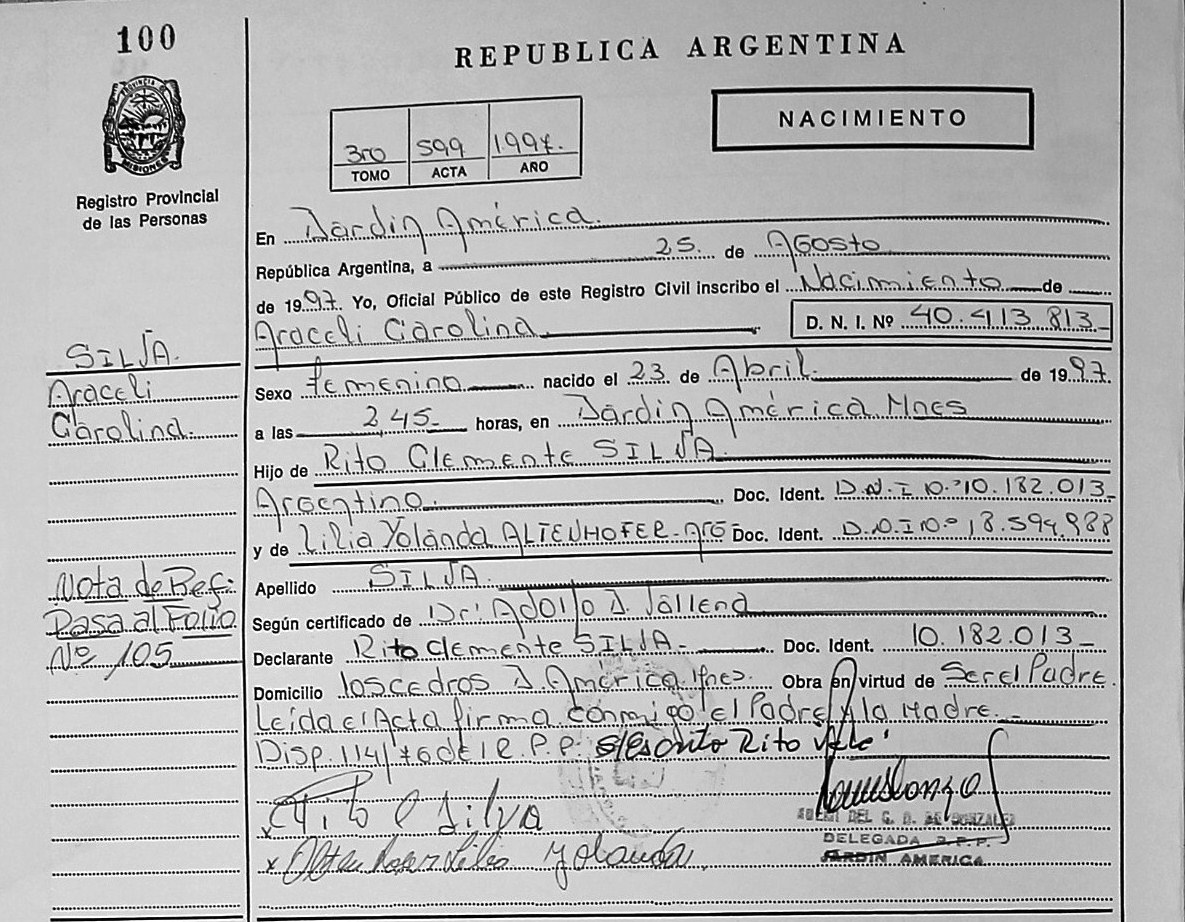 100
REPUBLICA ARGENTINA
NACIMIENTO
3ro 599 1.997.
TOMO ACTA AÑO
PROVINCIA DE MISIONES
Registro Provincial
de las Personas
En Jardin América.
República Argentina, a 25. de Agosto
de 1997. Yo, Oficial Público de este Registro Civil inscribo el Nacimiento de
Araceli Carolina D. N. I. Nº 40.413.813_
SILVA.
Araceli
Carolina.
Sexo femenino nacido el 23 de Abril. de 1997.
a las 2,45_ horas, en Jardin América Mnes
Hijo de Rito Clemente SILVA.
Argentino. Doc. Ident. D.N.I nº 10.182.013_
y de Lilia Yolanda ALTENHOFER_Arg Doc. Ident. D.N.I nº 18.594.988
Apellido SILVA.
Nota de Ref:
Pasa al Folio
Nº 105
Según certificado de Dr: Adolfo J.
Declarante Rito Clemente SILVA_ Doc. Ident. 10.182.013_
Domicilio los cedros J. América Mnes. Obra en virtud de Ser el Padre.
Leída el Acta firma conmigo el Padre y la Madre._
Disp. 114/76 de I R.P.P. s/Escrito Rito Vale
Rito C Silva
Altenhofer Lilia Yolanda
DE GONZALEZ
DELEGADA R.P.P.
JARDIN AMERICA